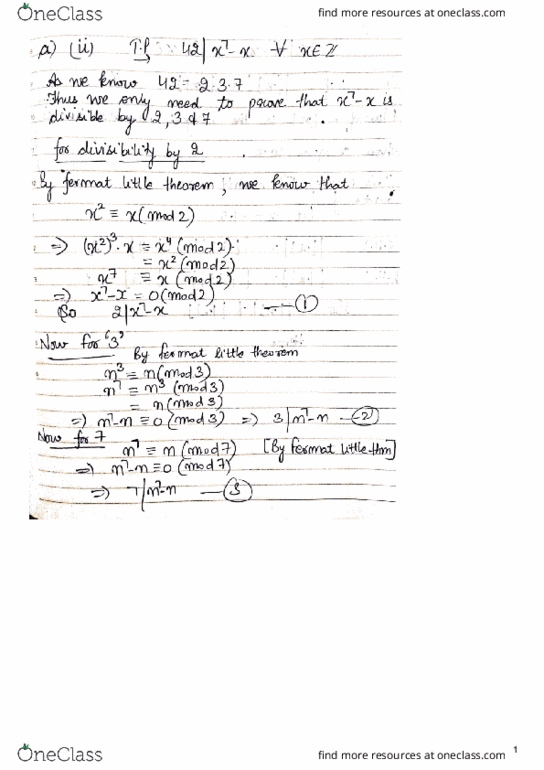 OneClass
find more resources at oneclass.com
a) (ii) T.P, 42 | x⁷-x ∀ x∈ℤ
As we know 42 = 2·3·7
Thus we only need to prove that x⁷-x is
divisible by 2, 3 & 7
for divisibility by 2
By fermat little theorem, we know that
x² ≡ x (mod 2)
⇒ (x²)³·x ≡ x⁴ (mod 2)
≡ x² (mod 2)
x⁷ ≡ x (mod 2)
⇒ x⁷-x = 0 (mod 2)
So 2 | x⁷-x — ①
Now for '3'
By fermat little theorem
n³ ≡ n (mod 3)
n⁷ ≡ n³ (mod 3)
= n (mod 3)
⇒ n⁷-n ≡ 0 (mod 3) ⇒ 3 | n⁷-n — ②
Now for 7
n⁷ ≡ n (mod 7) [By fermat little thm]
⇒ n⁷-n ≡ 0 (mod 7)
⇒ 7 | n⁷-n — ③
1
OneClass
find more resources at oneclass.com